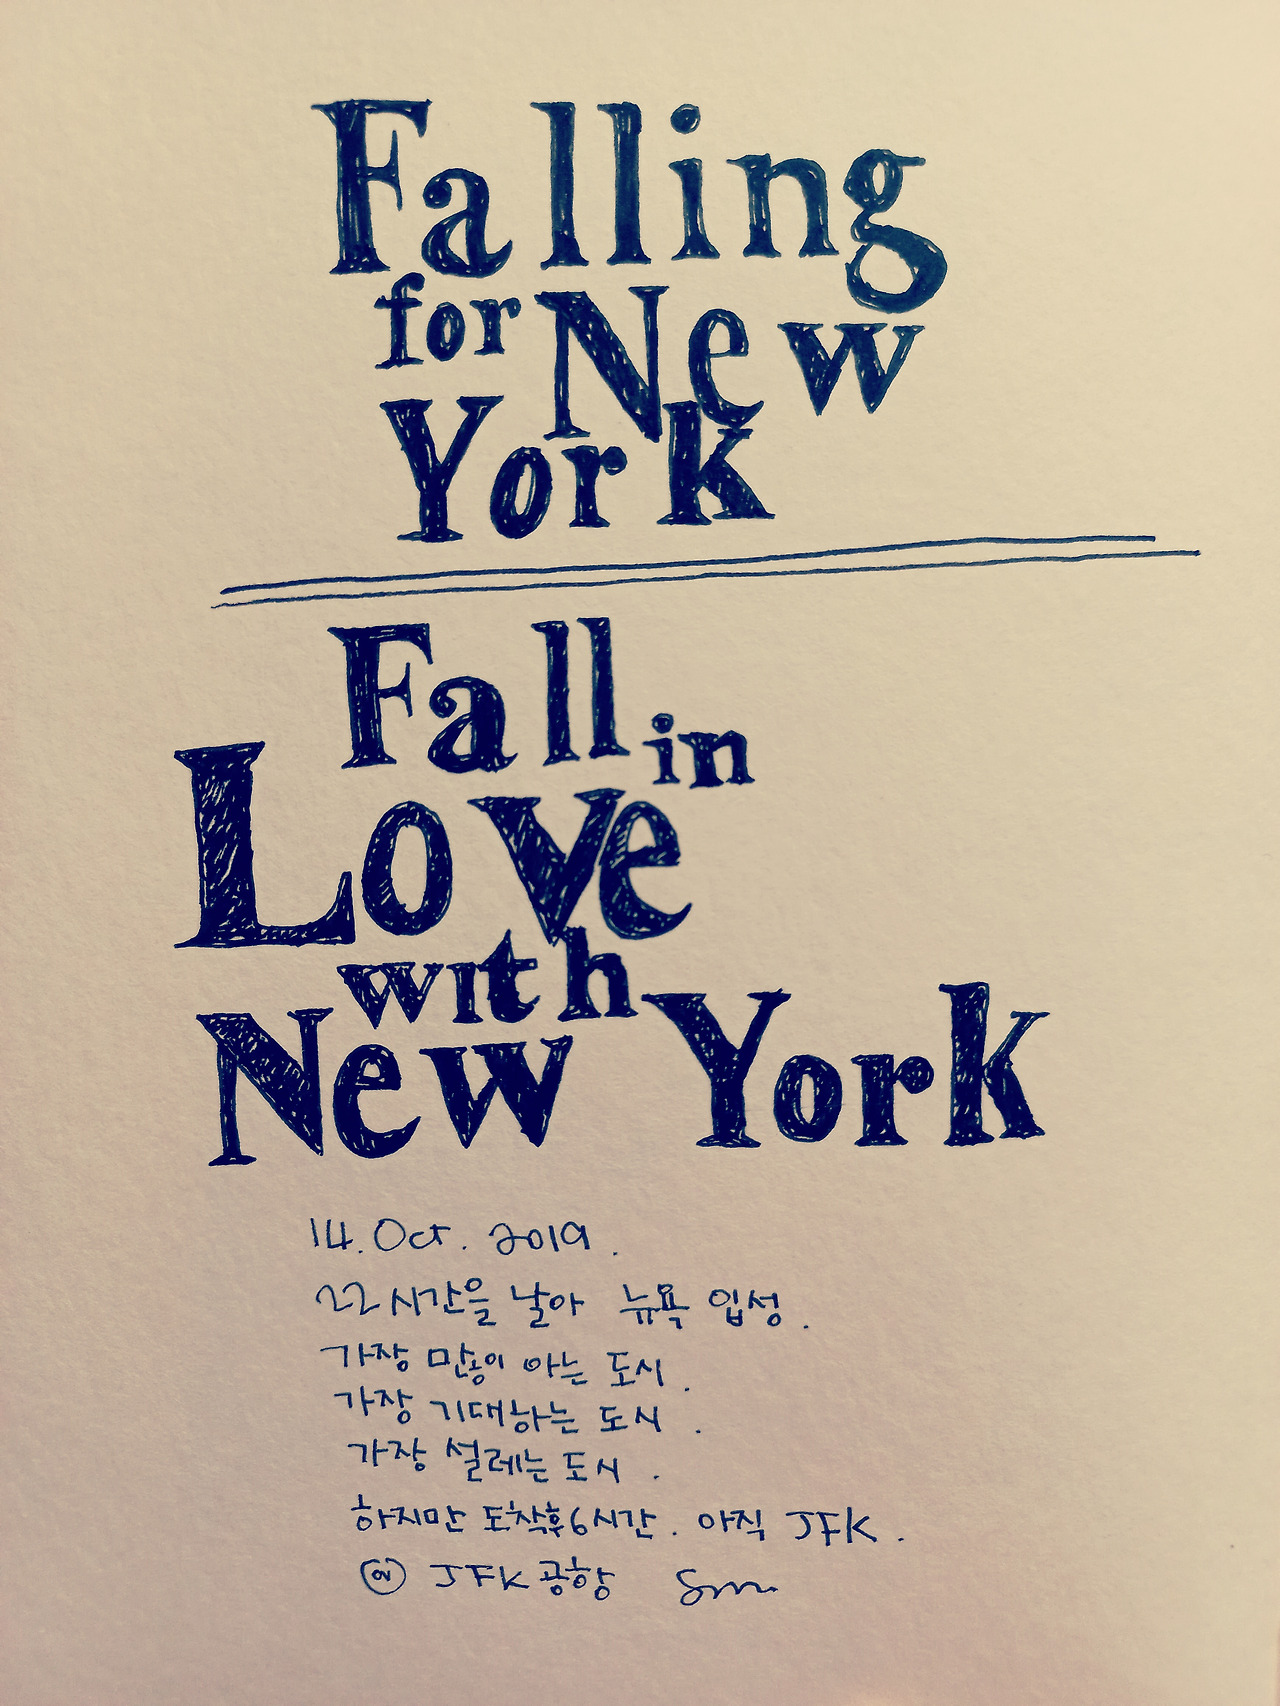 Falling
for New
York
Fall in
Love
with
New York
14. Oct. 2019.
22시간을 날아 뉴욕 입성.
가장 많이 아는 도시.
가장 기대하는 도시.
가장 설레는 도시.
하지만 도착후 6시간. 아직 JFK.
JFK 공항